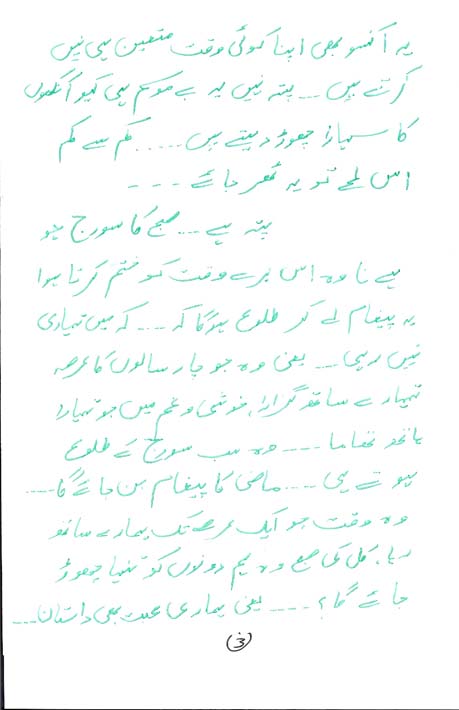 یہ آنسو بھی اپنا کوئی وقت متعین ہی نہیں
کرتے ہیں --- پتہ نہیں یہ بے موسم ہی کیوں آنکھوں
کا سہارا چھوڑ دیتے ہیں ..... کم سے کم
اس لمحے تو یہ ٹھہر جائے ---
پتہ ہے --- صبح کا سورج جو
ہے نا وہ اس برے وقت کو ختم کرتا ہوا
یہ پیغام لے کر طلوع ہوگا کہ --- کہ میں تمہاری
نہیں رہی --- یعنی وہ جو چار سالوں کا عرصہ
تمہارے ساتھ گزارا، خوشی و غم میں جو تمہارا
ہاتھ تھاما ---- وہ سب سورج کے طلوع
ہوتے ہی ---- ماضی کا پیغام بن جائے گا ----
وہ وقت جو ایک عرصے تک ہمارے ساتھ
رہا، کل کی صبح وہ ہم دونوں کو تنہا چھوڑ
جائے گا؟ ---- یعنی ہماری محبت بھی داستان ---